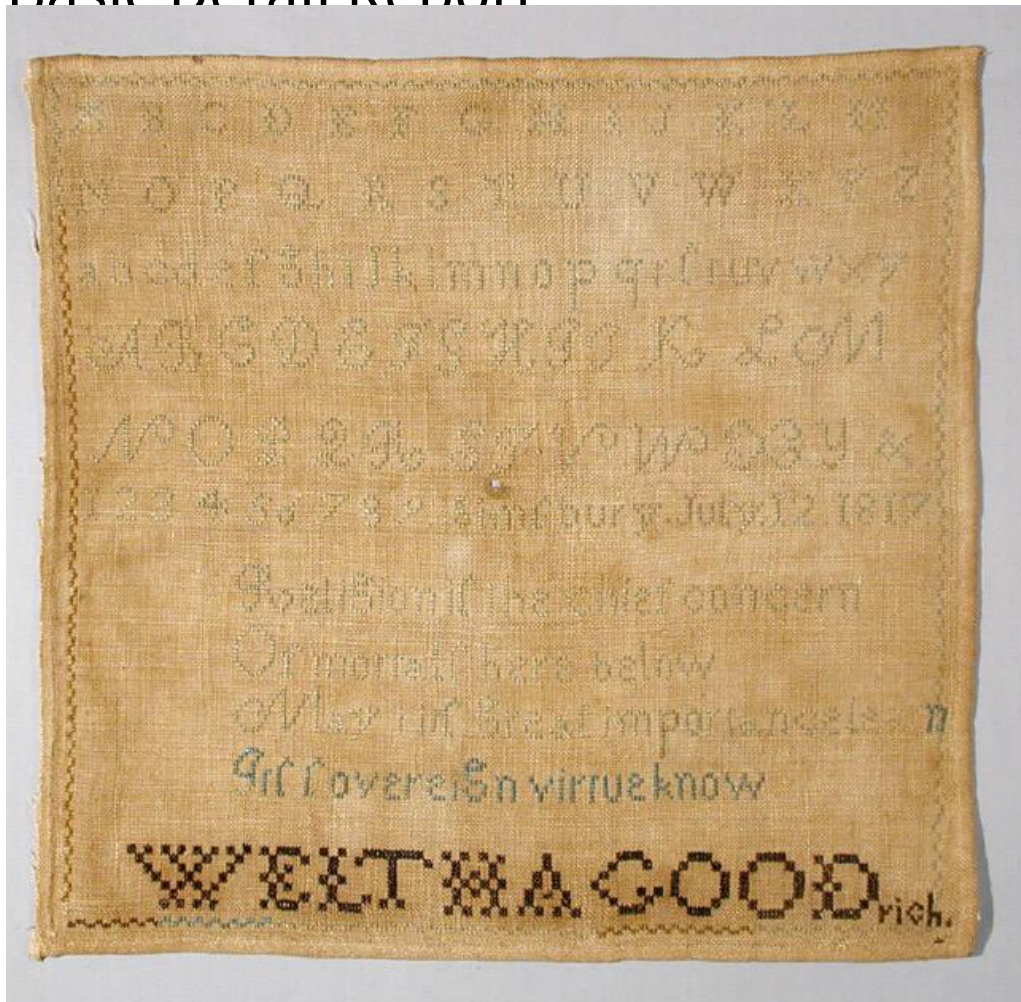 Basic Detail Report
A B C D E F G H I J K L M
N O P Q R S T U V W X Y Z
a b c d e f g h i j k l m n o p q r ſ t u v w x y
A B C D E F G H I J K L M
N O P Q R S T V W X Y &
1 2 3 4 5 6 7 8 9 July 12 1817
the chief concern
Of mortalſ here below
May itſ great importance learn
Itſ ſovereign virtue know
WELTHA GOODrich.